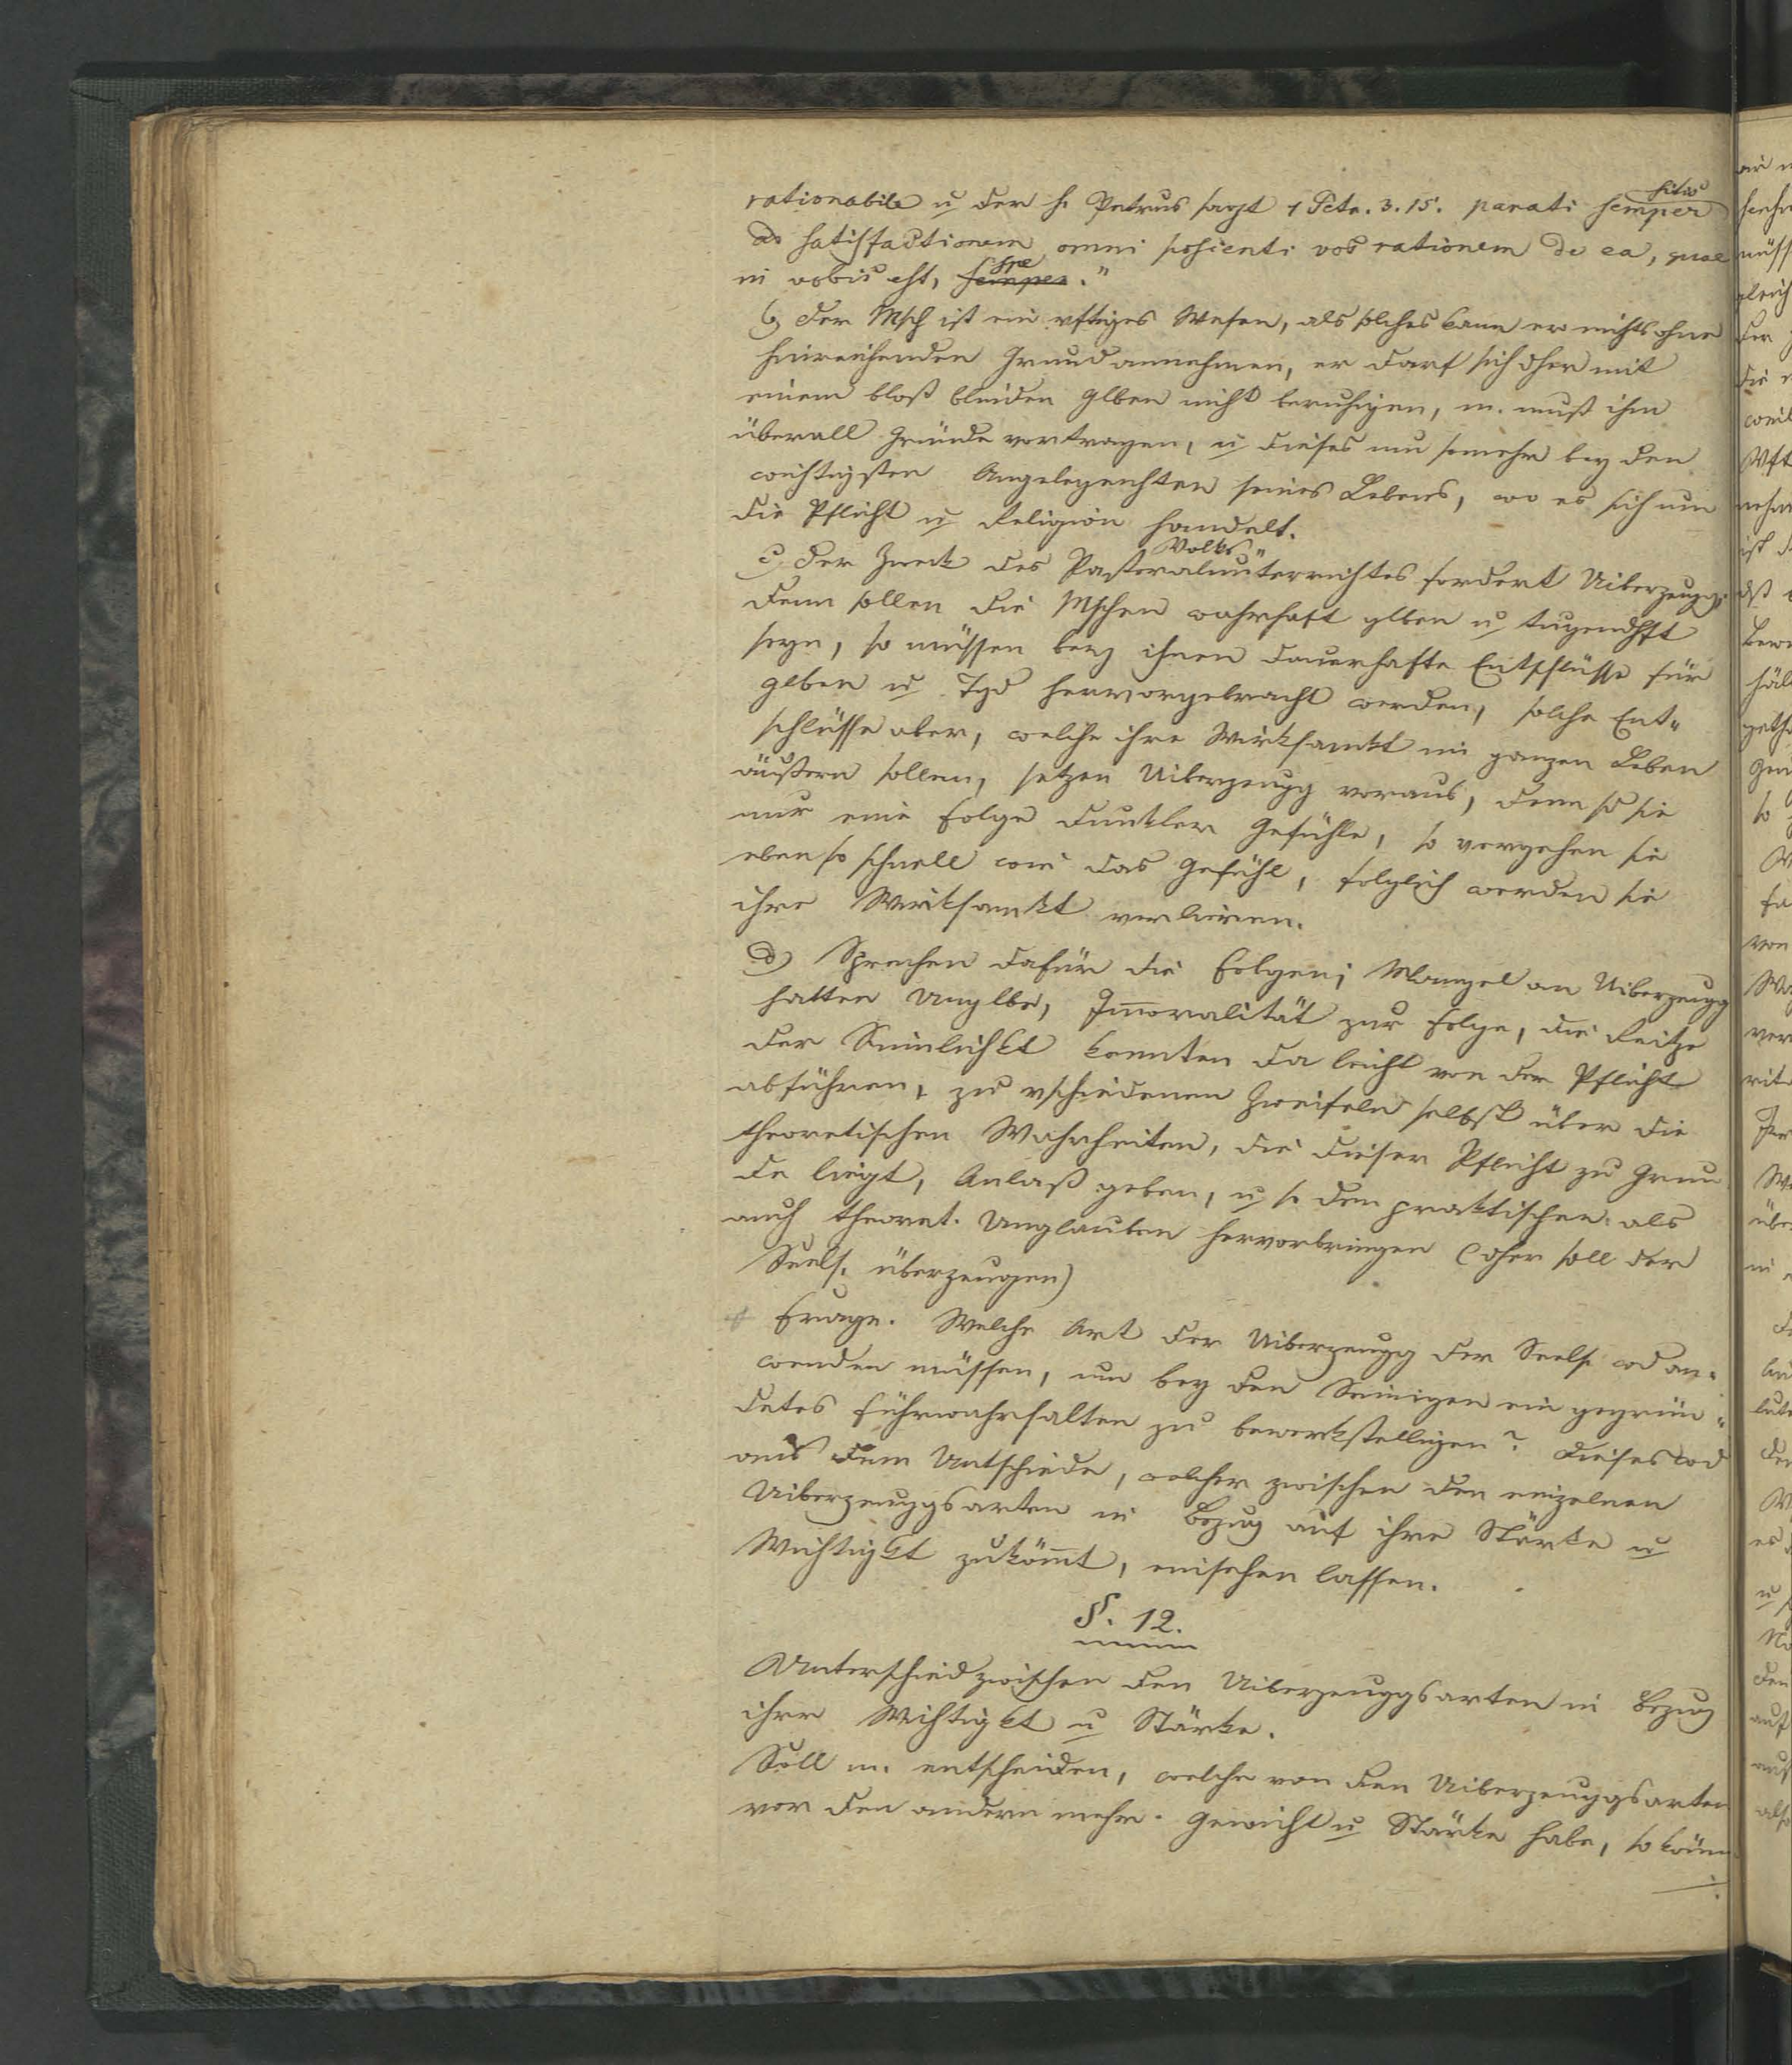 rationabile u der h. Petrus sagt 1 Petr. 3. 15. parati semper sitis
ad satisfactionem omni poscenti vos rationem de ea, quae
in vobis est, semper spe."
b) Der Msch ist ein vftiges Wesen, als solches kann er nichts ohne
hinreichenden Grund annehmen, er darf sich dher mit
einem bloß blinden Glben nicht beruhigen, m. muß ihm
überall Gründe vortragen, u dieses um somehr bey den
wichtigsten Angelegenhten seines Lebens, wo es sich um
die Pflicht u Religion handelt.
c) Der Zweck des Pastoral Volks unterrichtes fordert Uiberzeugg;
denn sollen die Mschen wahrhaft glben u tugendhft
seyn, so müssen bey ihnen dauerhafte Entschlüsse für
Glben u Tgd hervorgebracht werden, solche Ent"
schlüsse aber, welche ihre Wirksamkt im ganzen Leben
äußern sollen, setzen Uiberzeugg voraus, denn sd sie
nur eine Folge dunkler Gefühle, so vergehen sie
eben so schnell wie das Gefühl, folglich werden sie
ihre Wirksamkt verlieren.
d) Sprechen dafür die Folgen; Mangel an Uiberzeugg
hatten Unglbe, Immoralität zur Folge, die Reitze
der Sinnlichkt konnten da leicht von der Pflicht
abführen, zu vschiedenen Zweifeln selbst über die
theoretischen Wahrheiten, die dieser Pflicht zu Grun
de liegt, Anlaß geben, u so den praktischen als
auch theoret. Unglauben hervorbringen (dher soll der
Seels. überzeugen)
Frage. Welche Art der Uiberzeugg der Seels. wd an"
wenden müssen, um bey den Seinigen ein gegrün"
detes Führwahrhalten zu bewerkstelligen? Dieses wd
aus dem Untschiede, welcher zwischen den einzelnen
Uiberzeuggsarten in Bezug auf ihre Stärke u
Wichtigkt zukömmt, einsehen lassen.
§. 12.
Unterschied zwischen den Uiberzeuggsarten in Bezug
ihrer Wichtigkt u Stärke.
Soll m. entscheiden, welche von den Uiberzeuggsarten
vor den andern mehr Gewicht u Stärke habe, so köm